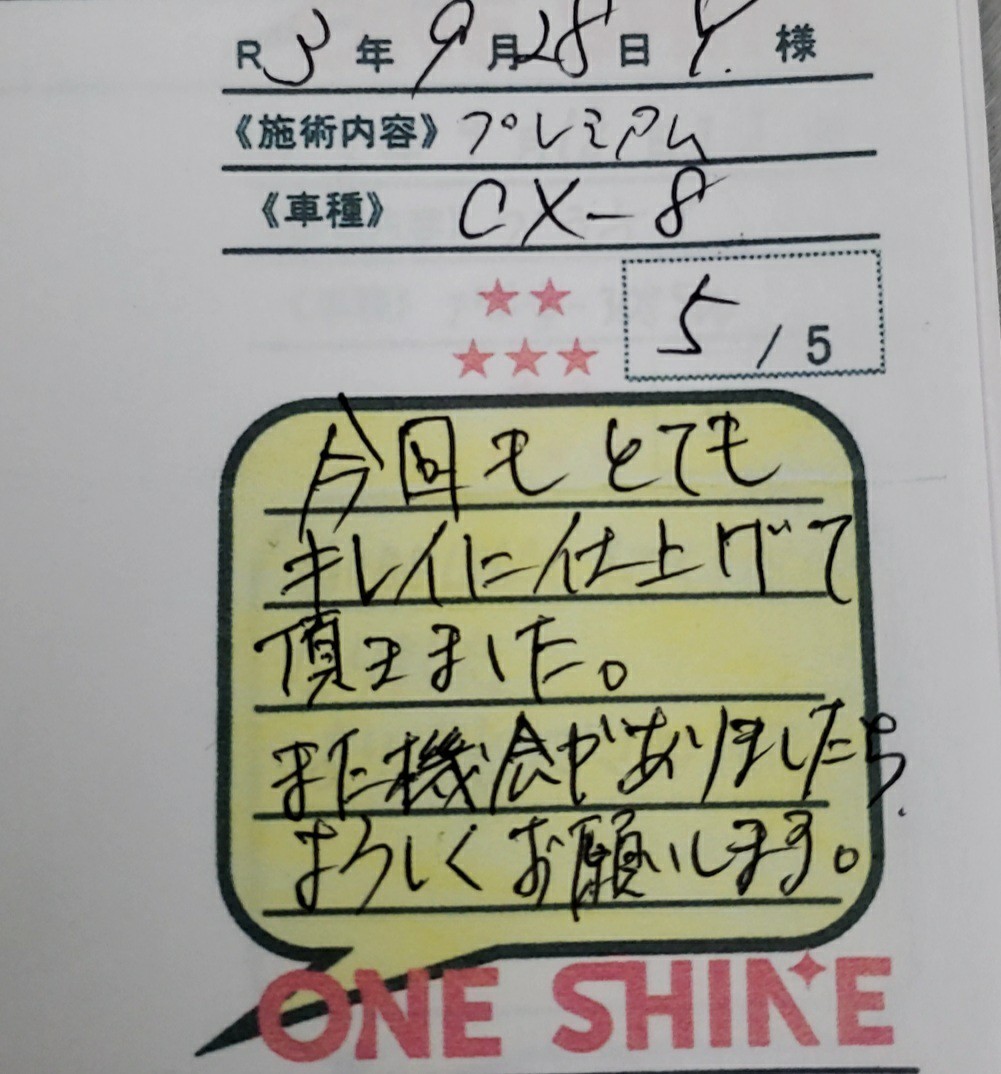 R3年9月28日 Y.様
《施術内容》プレミアム
《車種》CX-8
5/5
今回もとても
キレイに仕上げて
頂きました。
また機会がありましたら
よろしくお願いします。
ONE SHINE